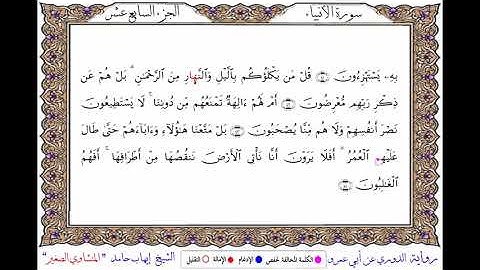 سورة الأنبياء الجزء السابع عشر
بِهِۦ يَسْتَهْزِءُونَ ۝ قُلْ مَن يَكْلَؤُكُم بِٱلَّيْلِ وَٱلنَّهَارِ مِنَ ٱلرَّحْمَٰنِ ۚ بَلْ هُمْ عَن
ذِكْرِ رَبِّهِم مُّعْرِضُونَ ۝ أَمْ لَهُمْ ءَالِهَةٌ تَمْنَعُهُم مِّن دُونِنَا ۚ لَا يَسْتَطِيعُونَ
نَصْرَ أَنفُسِهِمْ وَلَا هُم مِّنَّا يُصْحَبُونَ ۝ بَلْ مَتَّعْنَا هَٰٓؤُلَآءِ وَءَابَآءَهُمْ حَتَّىٰ طَالَ
عَلَيْهِمِ ٱلْعُمُرُ ۗ أَفَلَا يَرَوْنَ أَنَّا نَأْتِى ٱلْأَرْضَ نَنقُصُهَا مِنْ أَطْرَافِهَآ ۚ أَفَهُمُ
ٱلْغَٰلِبُونَ ۝
رواية الدوري عن أبي عمرو الكلمة المخالفة لحفص الإدغام الإمالة التقليل الشيخ إيهاب حامد "المنشاوي الصغير"